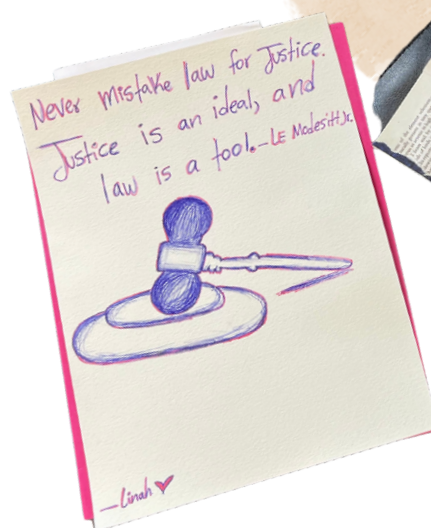 Never mistake law for Justice.
Justice is an ideal, and
law is a tool.-LE Modesitt Jr.
-Linah